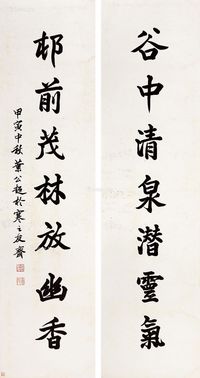 谷中清泉潛靈氣
邨前茂林放幽香
甲寅中秋葉公超於寒之友齋